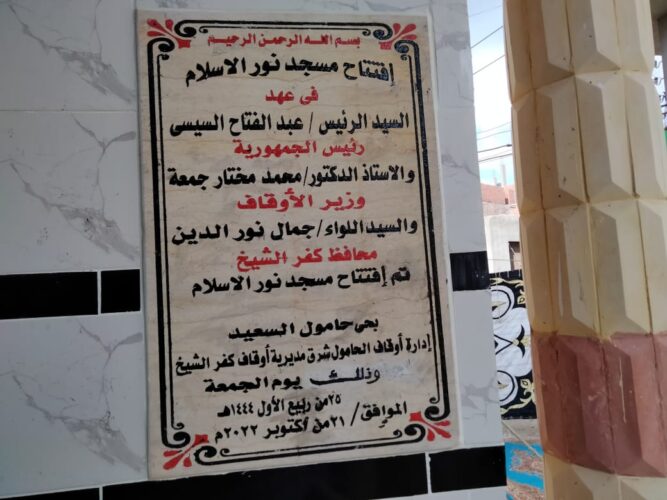 بسم الله الرحمن الرحيم
إفتتاح مسجد نور الاسلام
فى عهد
السيد الرئيس / عبد الفتاح السيسى
رئيس الجمهورية
والاستاذ الدكتور/محمد مختار جمعة
وزير الأوقاف
والسيد اللواء/جمال نور الدين
محافظ كفر الشيخ
تم إفتتاح مسجد نور الاسلام
بحى حامول السعيد
إدارة أوقاف الحامول شرق مديرية أوقاف كفر الشيخ
وذلك يوم الجمعة
٢٥من ربيع الأول ١٤٤٤هـ
الموافق / ٢١من أكتوبر ٢٠٢٢م